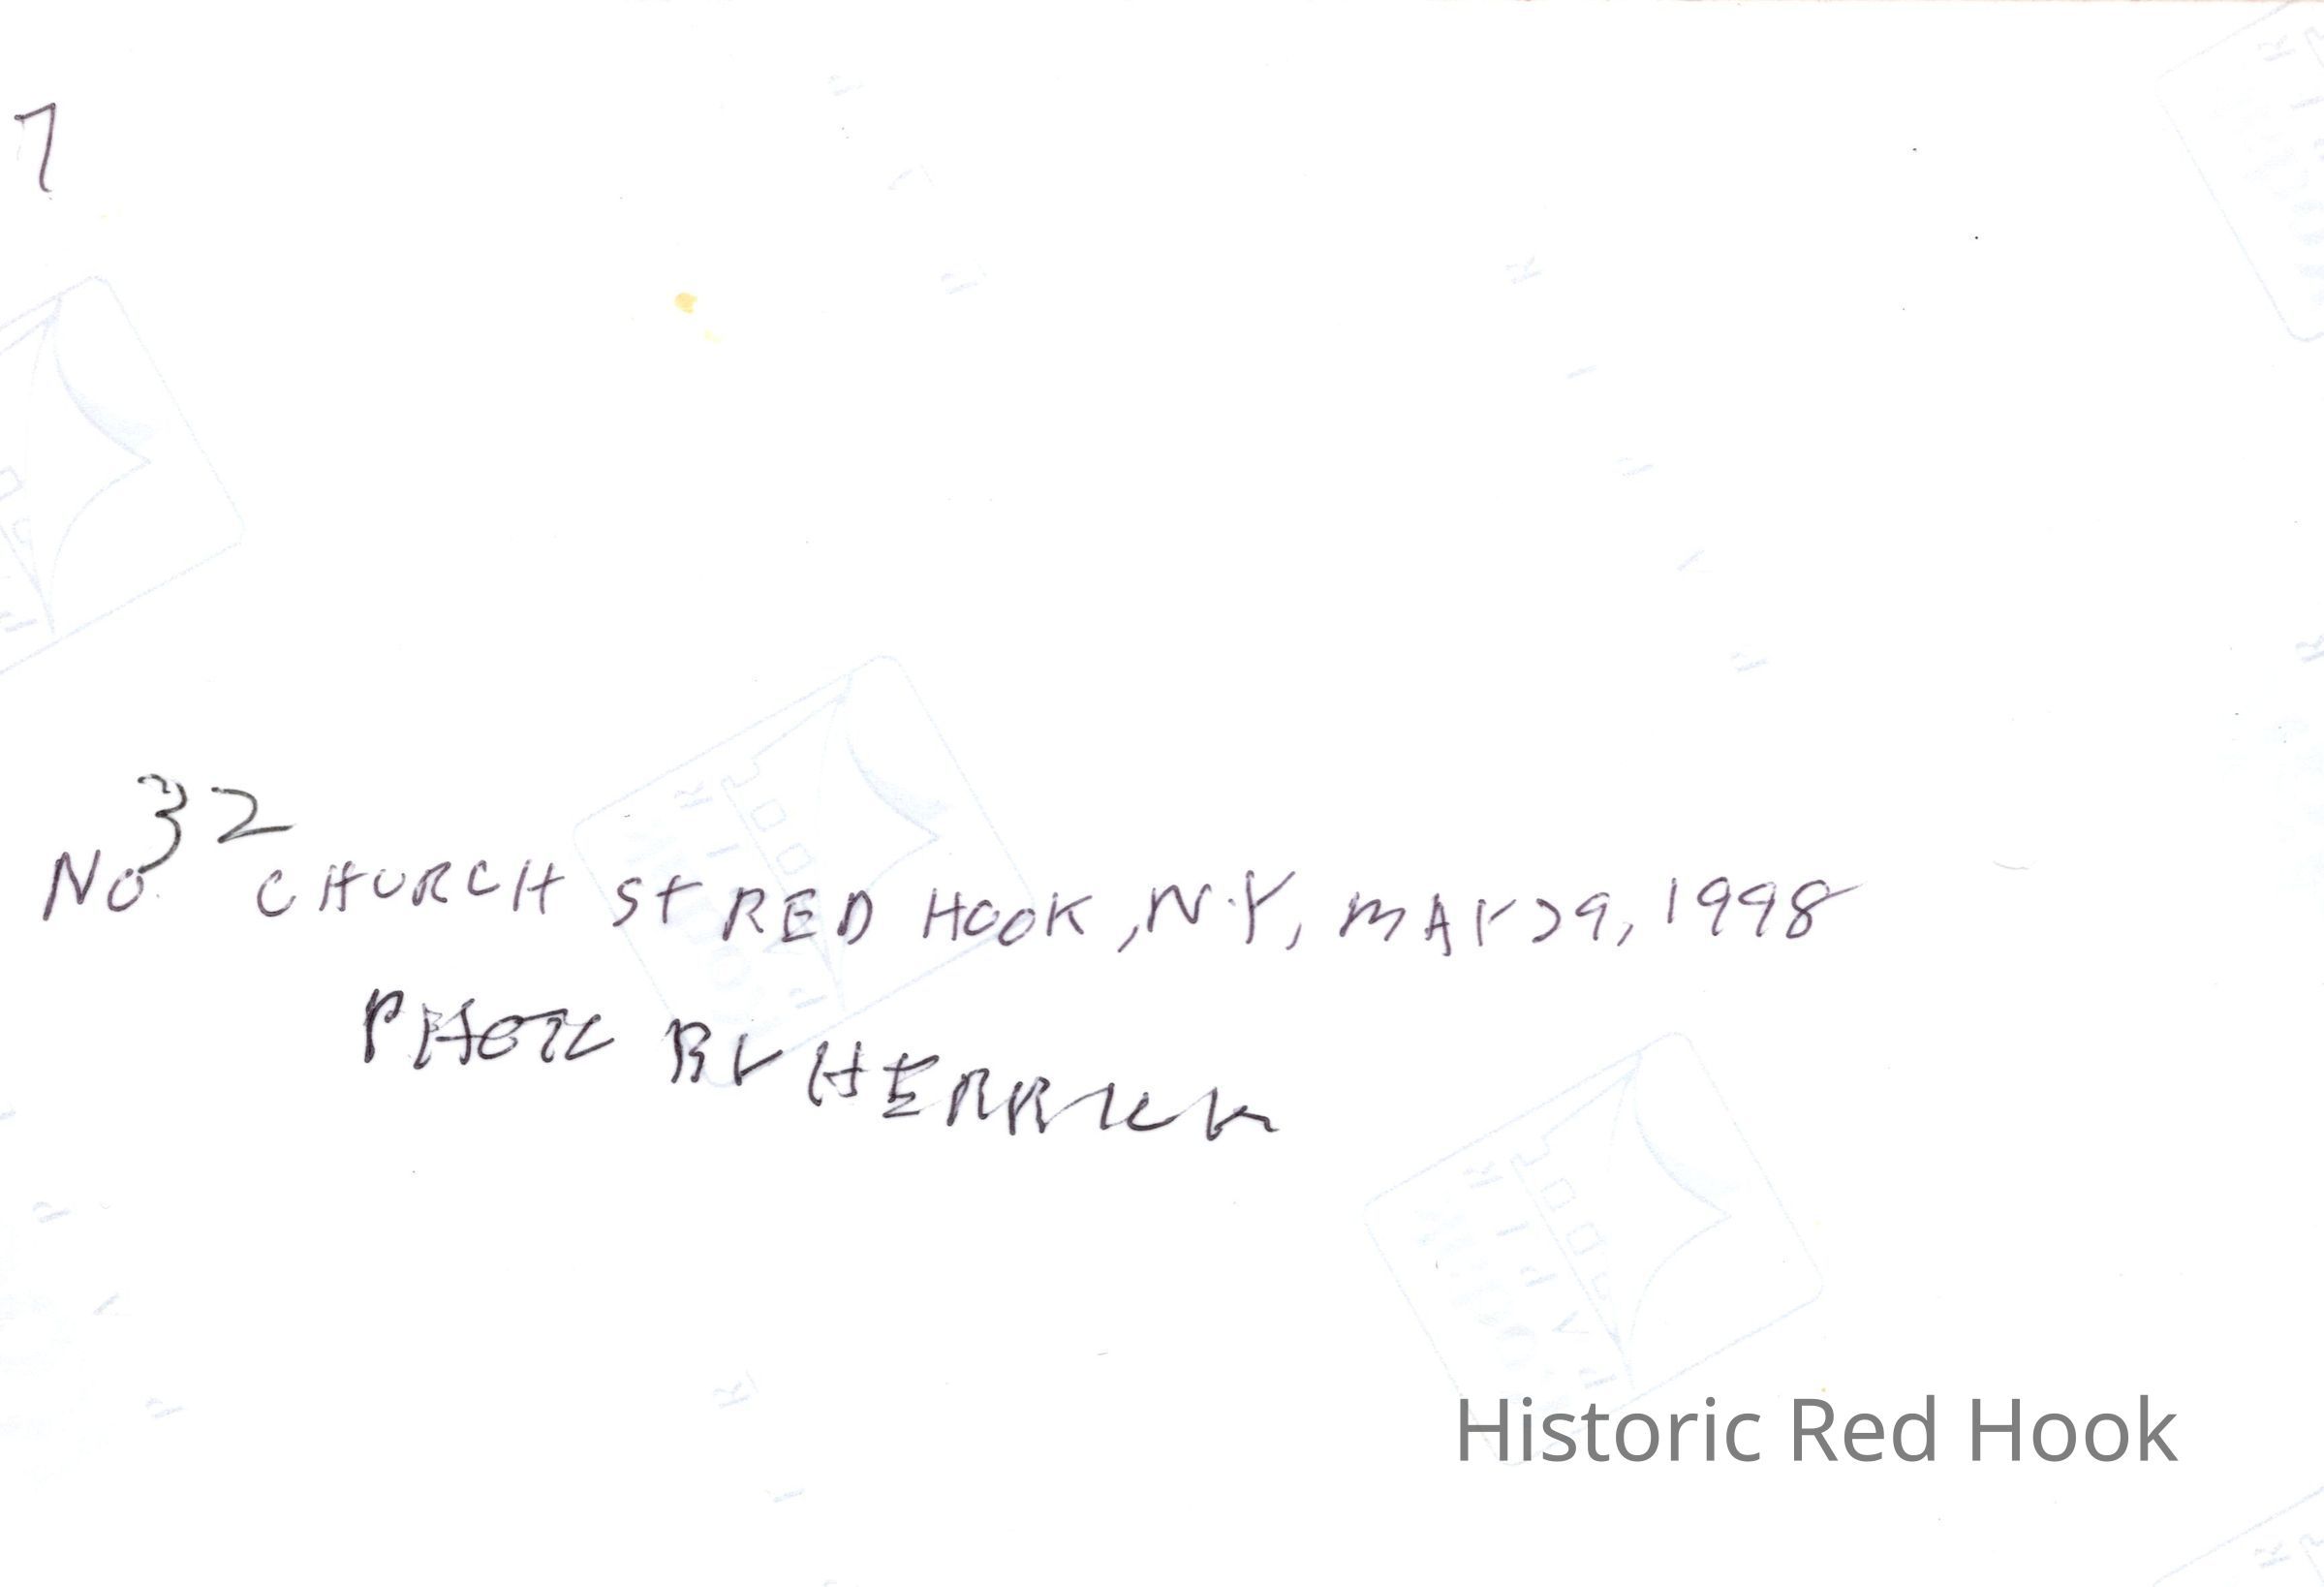 7
No. 32 CHURCH St RED HOOK, N.Y, MAY 29, 1998
PHOTO BY HERRICK
Historic Red Hook